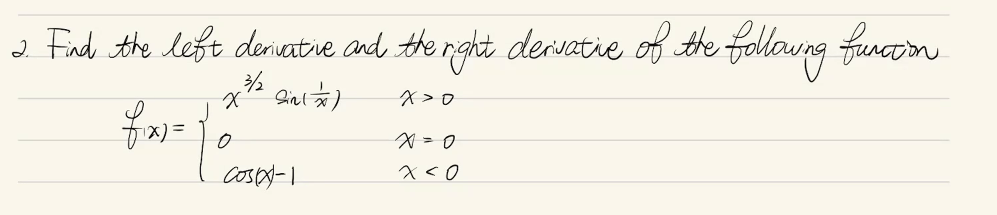 2. Find the left derivative and the right derivative of the following function
f(x) = { x^{3/2} sin(1/x) x > 0
0 x = 0
cos(x)-1 x < 0